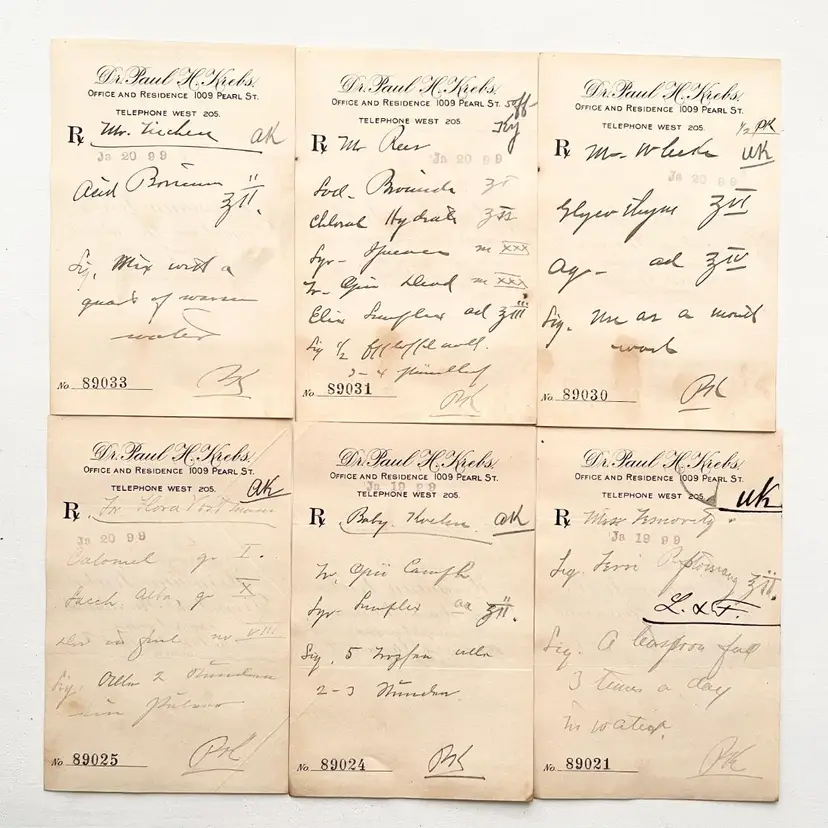 Dr. Paul H. Krebs,
OFFICE AND RESIDENCE 1009 PEARL ST.
TELEPHONE WEST 205.
Rx Mr. AK
Ja 20 99
Acid ʒii.
Sig. Mix with a
quart of warm
water
No. 89033 PK
Dr. Paul H. Krebs,
OFFICE AND RESIDENCE 1009 PEARL ST.
TELEPHONE WEST 205.
Rx Mr
Ja 20 99
Sod. ʒi
Chloral Hydrate
Syr. m xxx
Tr. Opii Deod m xxx
Elix Simplex ad ʒiii
Sig ½
3-4
No. 89031 PK
Dr. Paul H. Krebs,
OFFICE AND RESIDENCE 1009 PEARL ST.
TELEPHONE WEST 205.
½ PK
Rx Mr. AK
Ja 20 99
Glyco Thym ʒvi
Aq- ad ʒiv
Sig. Use as a mouth
wash
No. 89030 PK
Dr. Paul H. Krebs,
OFFICE AND RESIDENCE 1009 PEARL ST.
TELEPHONE WEST 205. AK
Rx Fr Flora
Ja 20 99
Calomel gr I.
Sacch. Alba. gr X
no VIII
Sig. Alle 2 Stunden
ein Pulver
No. 89025 PK
Dr. Paul H. Krebs,
OFFICE AND RESIDENCE 1009 PEARL ST.
Ja 19 99
TELEPHONE WEST 205.
Rx Baby AK
Tr. Opii Camph
Syr- Simplex aa ʒii.
Sig. 5 Tropfen alle
2-3 Stunden.
No. 89024 PK
Dr. Paul H. Krebs,
OFFICE AND RESIDENCE 1009 PEARL ST.
TELEPHONE WEST 205.
AK
Rx Miss
Ja 19 99
ʒii.
L. & F.
Sig. A teaspoon full
3 times a day
in water.
No. 89021 PK